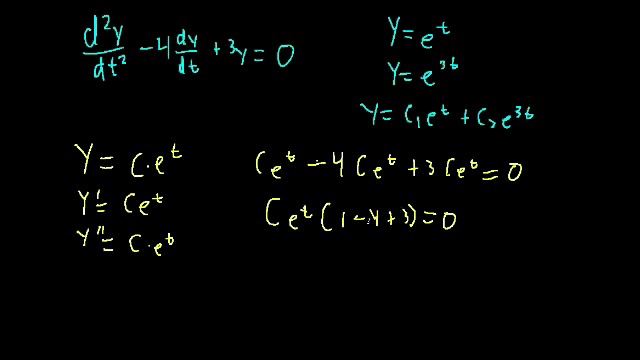 d²y/dt² - 4 dy/dt + 3y = 0
y = e^t
y = e^3t
y = c₁e^t + c₂e^3t
y = c·e^t
y' = ce^t
y'' = c·e^t
Ce^t - 4Ce^t + 3Ce^t = 0
Ce^t(1 - 4 + 3) = 0